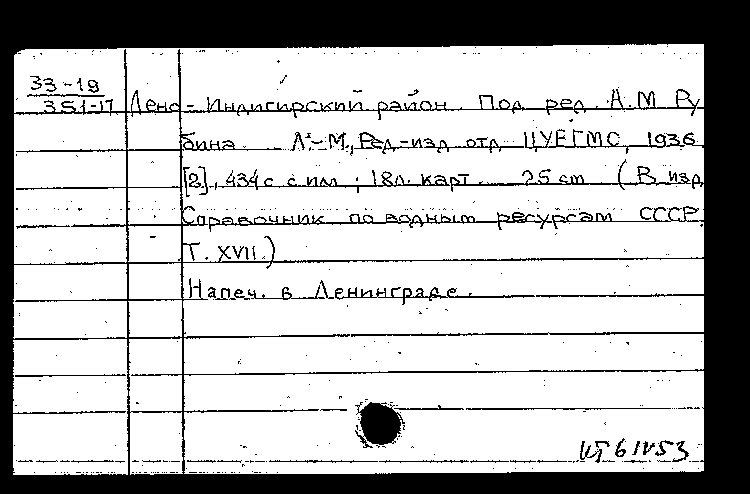 33-19
351-17 Лено-Индигирский район. Под ред. А.М Ру
бина. Л-М., Ред-изд отд ЦУЕГМС, 1936
[2], 434с с илл ; 18л. карт. 25 см (В изд
Справочник по водным ресурсам СССР.
Т. XVII.)
Напеч. в Ленинграде.
6 IV 53